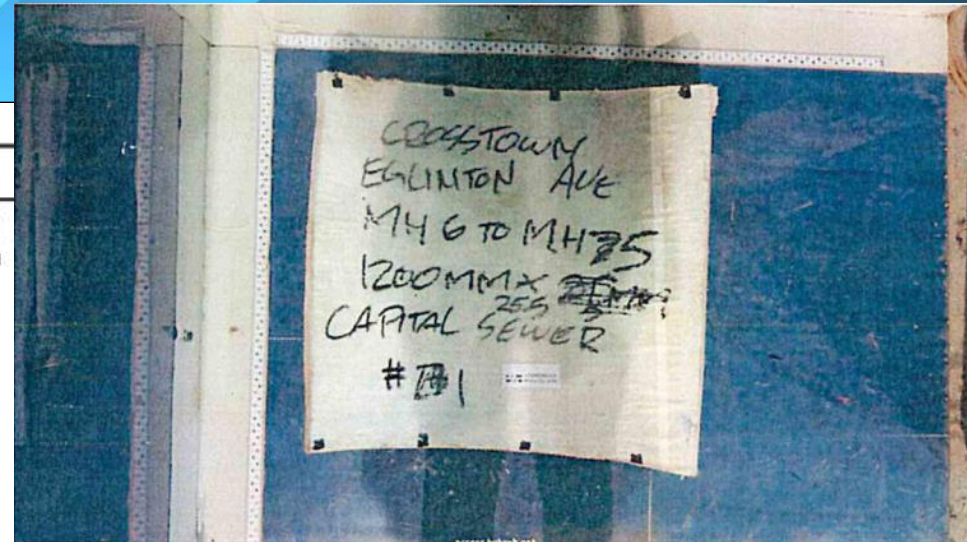 CROSSTOWN
EGLINTON AVE
MH 6 TO MH 5
1200MM X
25.5
CAPITAL SEWER
# B1